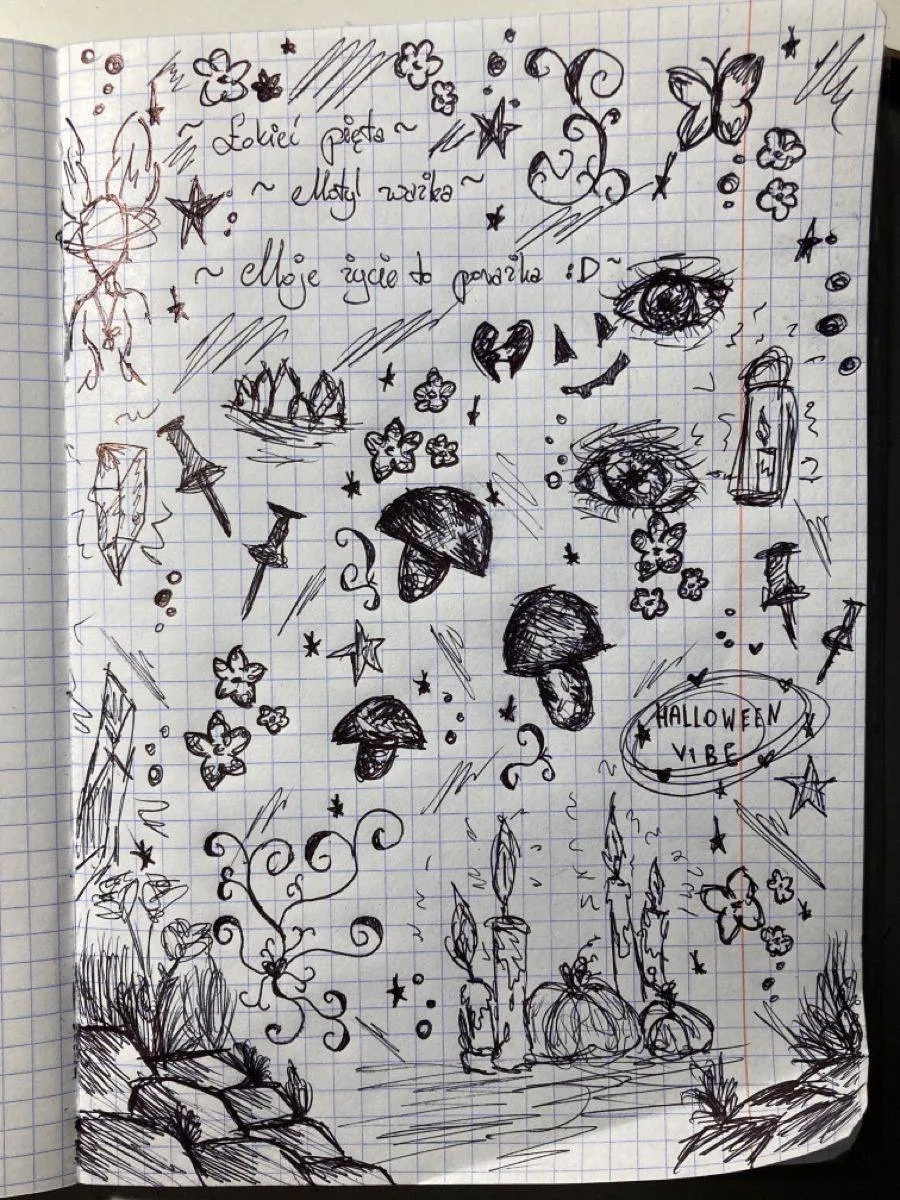 ~ Łokieć pięta ~
~ Motyl ważka ~
~ Moje życie to porażka :D ~
HALLOWEEN
VIBE